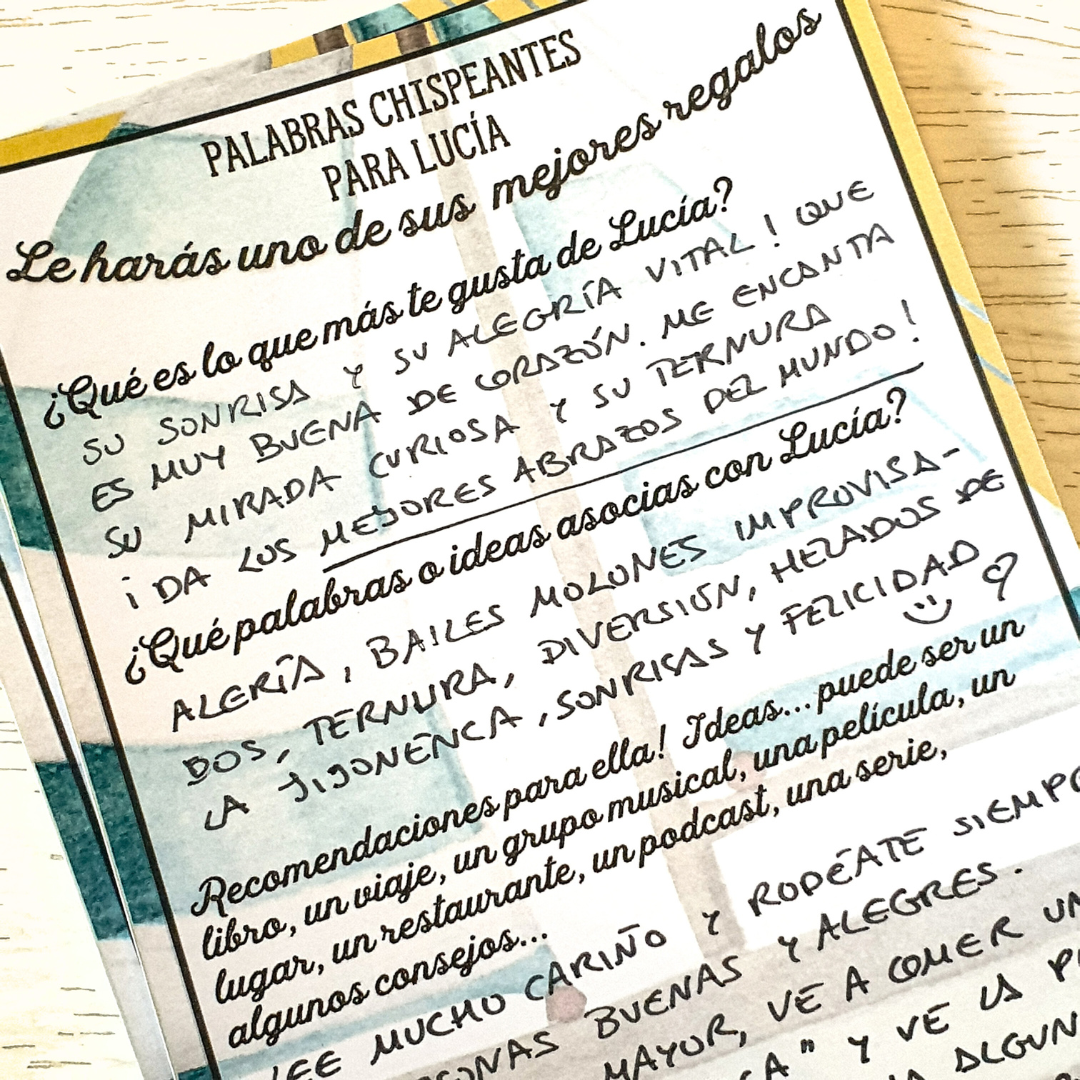 PALABRAS CHISPEANTES
PARA LUCÍA
Le harás uno de sus mejores regalos
¿Qué es lo que más te gusta de Lucía?
SU SONRISA Y SU ALEGRÍA VITAL! QUE
ES MUY BUENA DE CORAZÓN. ME ENCANTA
SU MIRADA CURIOSA Y SU TERNURA
¡DA LOS MEJORES ABRAZOS DEL MUNDO!
¿Qué palabras o ideas asocias con Lucía?
ALERÍA, BAILES MOLONES IMPROVISA-
DOS, TERNURA, DIVERSIÓN, HELADOS DE
LA JIJONENCA, SONRISAS Y FELICIDAD
Recomendaciones para ella! Ideas... puede ser un
libro, un viaje, un grupo musical, una película, un
lugar, un restaurante, un podcast, una serie,
algunos consejos...
MUCHO CARIÑO Y RODÉATE SIEMPRE
BUENAS Y ALEGRES.
MAYOR, VE A COMER
" Y VE LA